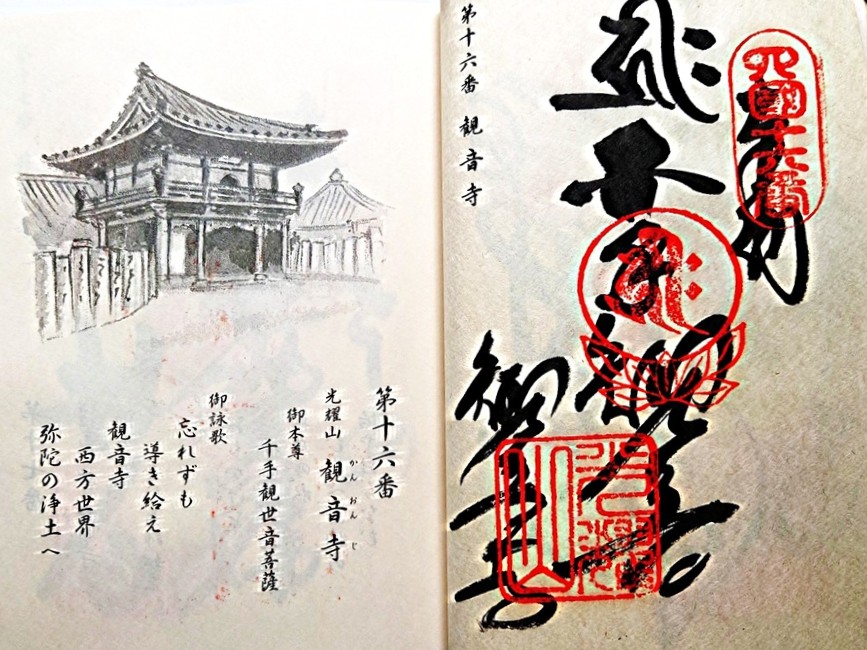 四国十六番
第十六番 観音寺
第十六番
光耀山 観音寺
かんおんじ
御本尊
千手観世音菩薩
御詠歌
忘れずも
導き給え
観音寺
西方世界
弥陀の浄土へ